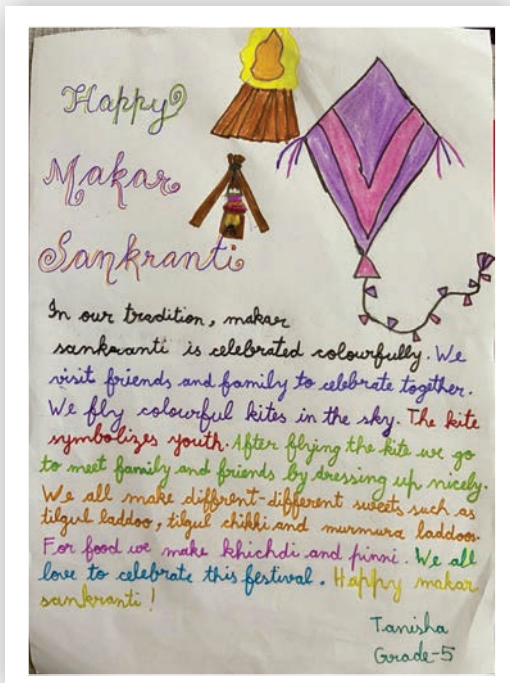 Happy
Makar
Sankranti
In our tradition, makar
sankranti is celebrated colourfully. We
visit friends and family to celebrate together.
We fly colourful kites in the sky. The kite
symbolizes youth. After flying the kite we go
to meet family and friends by dressing up nicely.
We all make diffrent-diffrent sweets such as
tilgul laddoo, tilgul chikki and murmura laddoos.
For food we make khichdi and pinni. We all
love to celebrate this festival. Happy makar
sankranti!
Tanisha
Grade-5